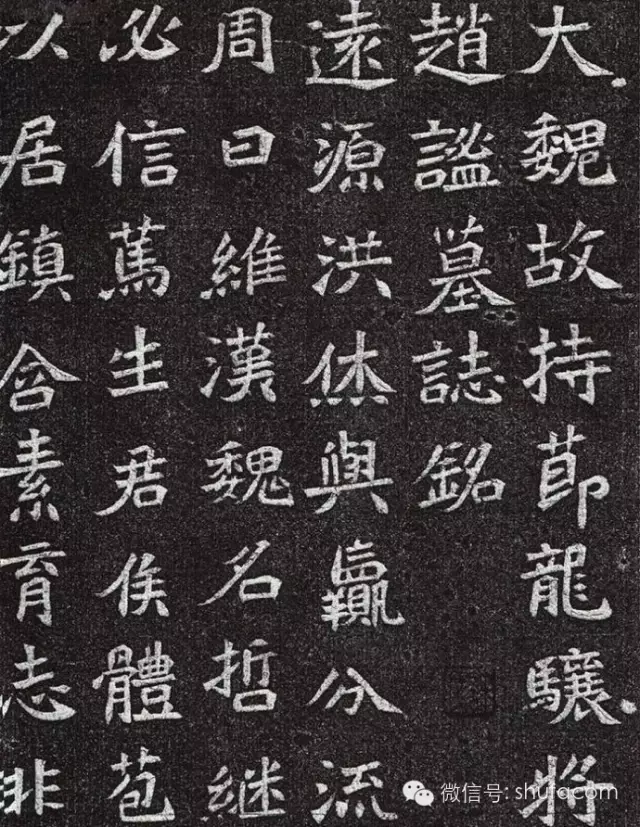 大魏故持莭龍驤將
趙謐墓誌銘
遠源洪休與羸分流
周曰維漢魏名哲継
必信萬生君侯體苞
以居鎮含素育志非
微信号: shufacom